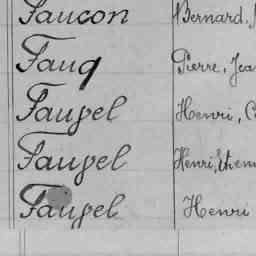 Faucon Bernard,
Fauq Pierre, Jea
Faugel Henri, C
Faugel Henri, Etem
Faugel Henri